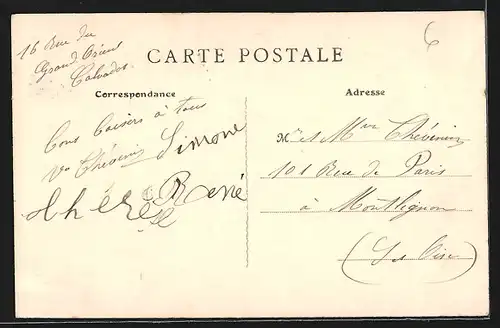 16 Rue du
Grand Orient
Calvados
6
CARTE POSTALE
Correspondance
Adresse
Bons baisers à tous
Vve Thévenin Simone
thérèse René
Mr et Mme Thévenin
101 Rue de Paris
à Montlignon
(S et Oise)